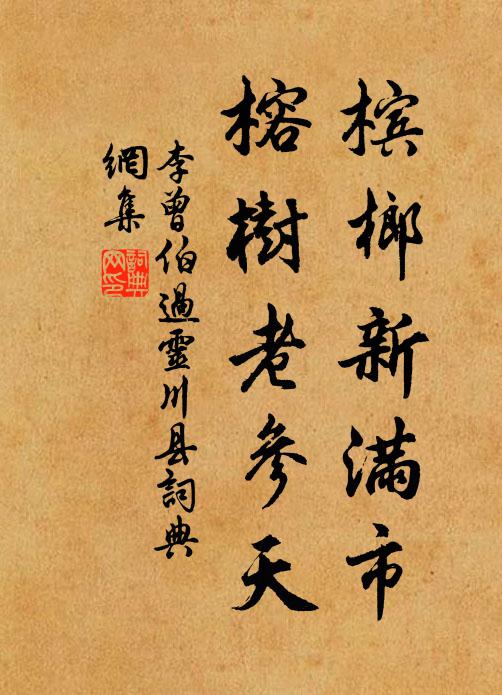 槟榔新满市
榕樹老參天
李曾伯過靈川县詞典
網集
詞典
网印